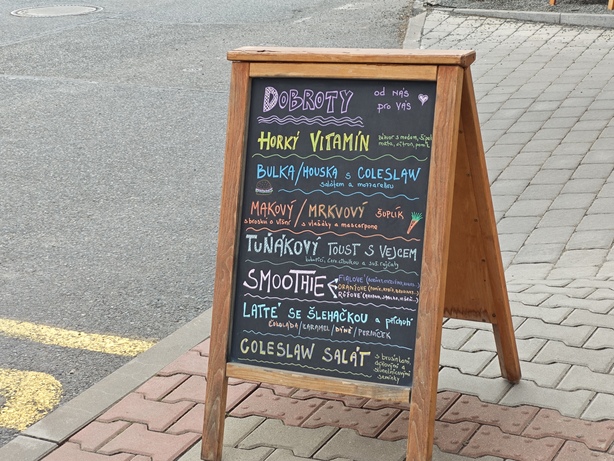 DOBROTY
od NÁS
pro VÁS
HORKÝ VITAMÍN
zázvor s medem,
máta, citron,
BULKA/HOUSKA S COLESLAW
salátem a mozzarellou
MAKOVÝ/MRKVOVÝ ŠUPLÍK
s broskví a višní s vlašáky a mascarpone
TUŇÁKOVÝ TOUST S VEJCEM
SMOOTHIE
FIALOVÉ
ORANŽOVÉ
RŮŽOVÉ
LATTÉ SE ŠLEHAČKOU a příchutí
ČOKOLÁDA/KARAMEL/DÝNĚ/PERNÍČEK
COLESLAW SALÁT
s brusinkami
semínky